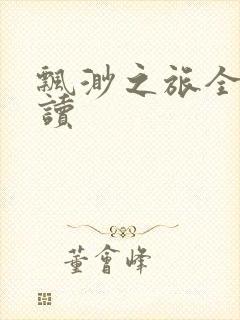 飄渺之旅全
讀
董會峰